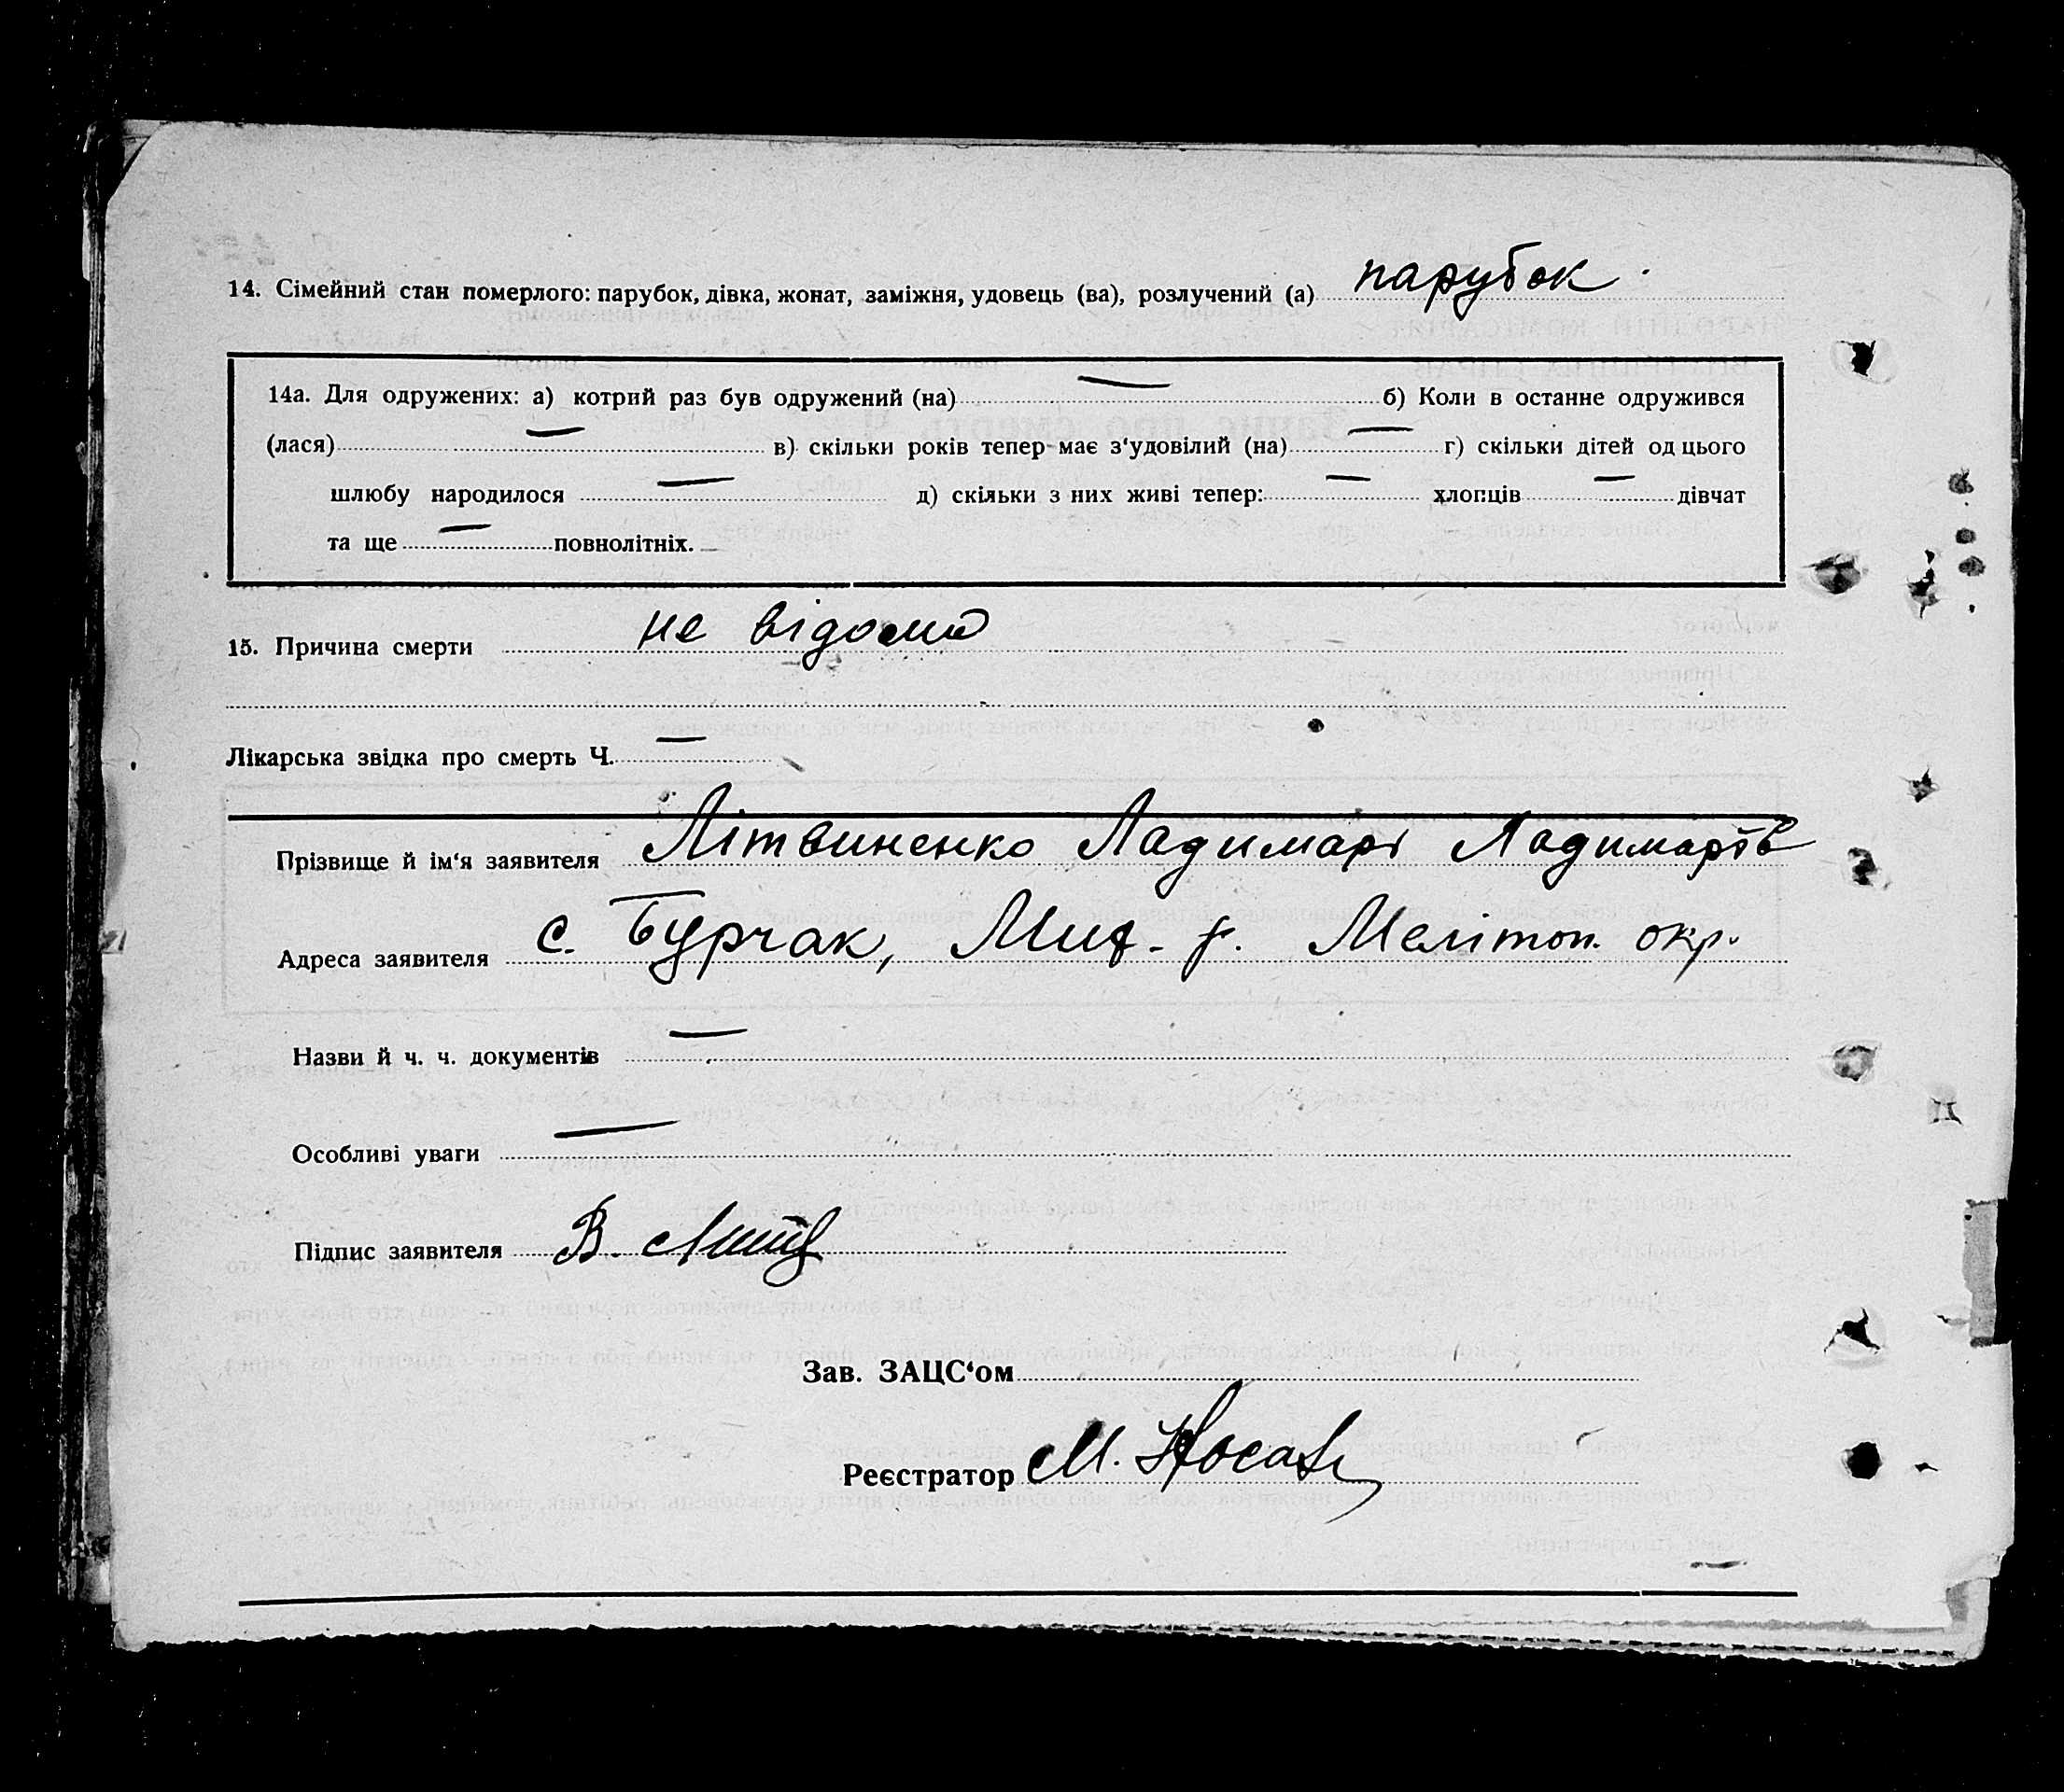 14. Сімейний стан померлого: парубок, дівка, жонат, заміжня, удовець (ва), розлучений (а) парубок
14а. Для одружених: а) котрий раз був одружений (на) — б) Коли в останне одружився
(лася) — в) скільки років тепер має з‘удовілий (на) — г) скільки дітей од цього
шлюбу народилося — д) скільки з них живі тепер: — хлопців — дівчат
та ще — повнолітніх.
15. Причина смерти не відома
Лікарська звідка про смерть Ч. —
Прізвище й ім‘я заявителя Літвиненко Ладимар Ладимарів
Адреса заявителя с. Бурчак, Мих. р. Меліτοп. окр.
Назви й ч. ч. документів —
Особливі уваги —
Підпис заявителя В. Литв
Зав. ЗАЦС‘ом
Реєстратор М. Носань